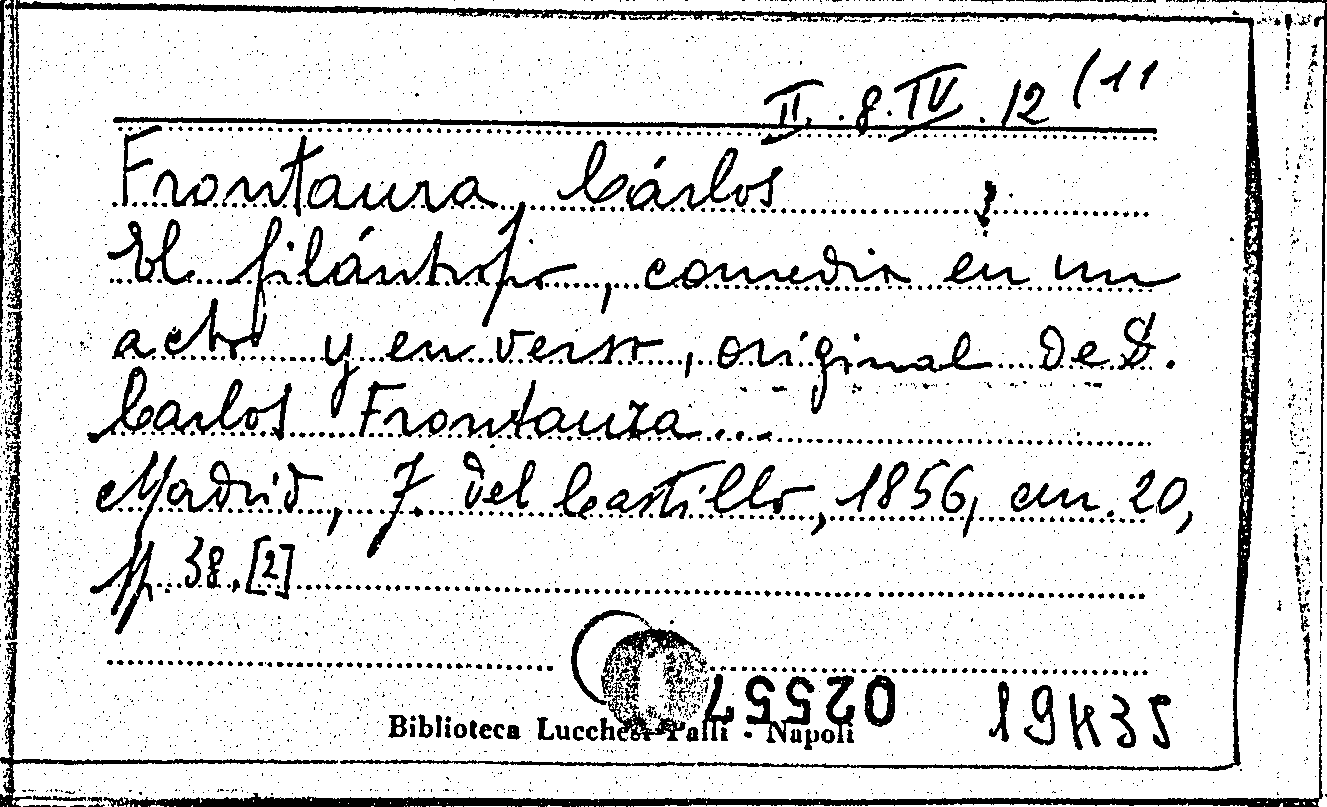 II. 8. IV. 12 (11
Frontaura, Cárlos
El filántropo, comedia en un
acto y en verso, original de D.
Carlos Frontaura...
Madrid, J. del Castillo, 1856, cm. 20,
pp. 38, [2]
02557
Biblioteca Lucchesi-Palli - Napoli